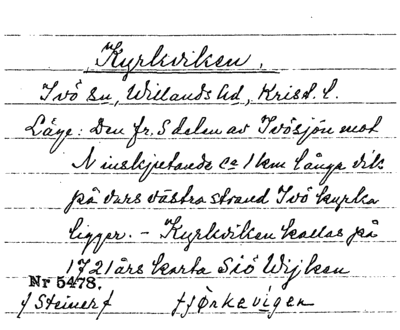 Kyrkviken.
Ivö sn, Willands hd, Krist. l.
Läge: Den fr. S delen av Ivösjön mot
N inskjutande ca 1 km långa vik
på vars västra strand Ivö kyrka
ligger. – Kyrkviken kallas på
1721 års karta Siö Wijken
Nr 5478.
f Steiner f tjörkevigen